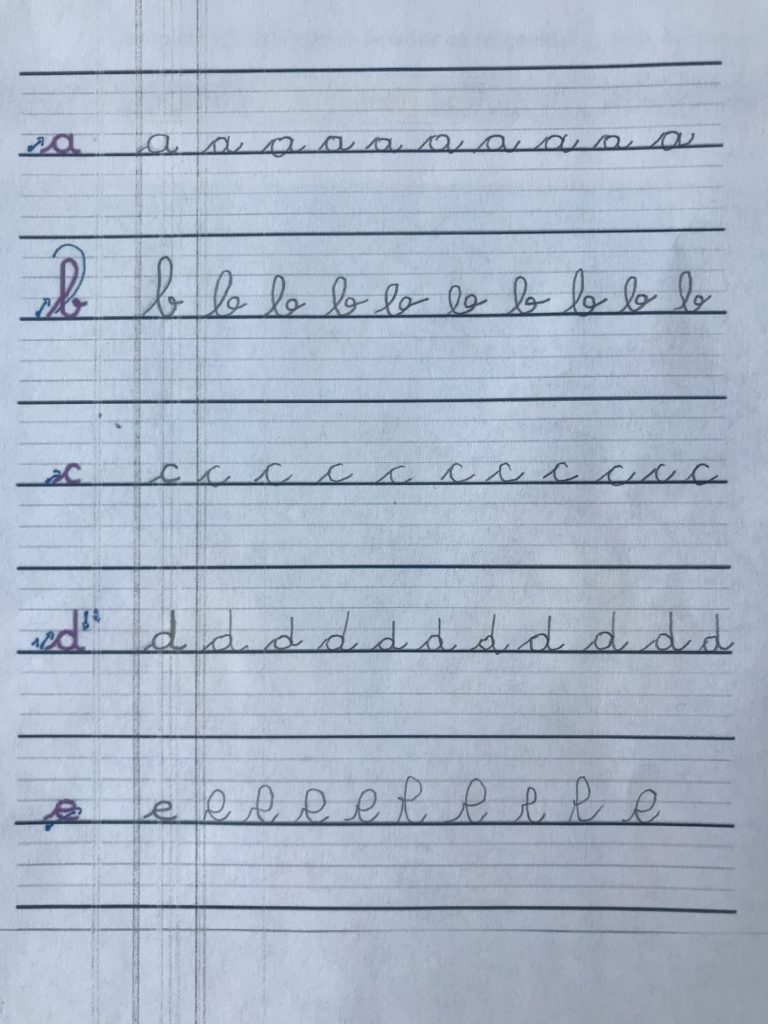 a a a a a a a a a a a
b b b b b b b b b b b
c c c c c c c c c c c c
d d d d d d d d d d d d
e e e e e e e e e e e